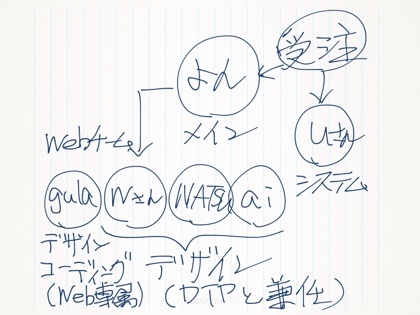 受注
よん
メイン
Uさん
システム
Webチーム
gula
Nさん
WATSU
ai
デザイン
コーディング
(Web専属)
デザイン
(DTPと兼任)